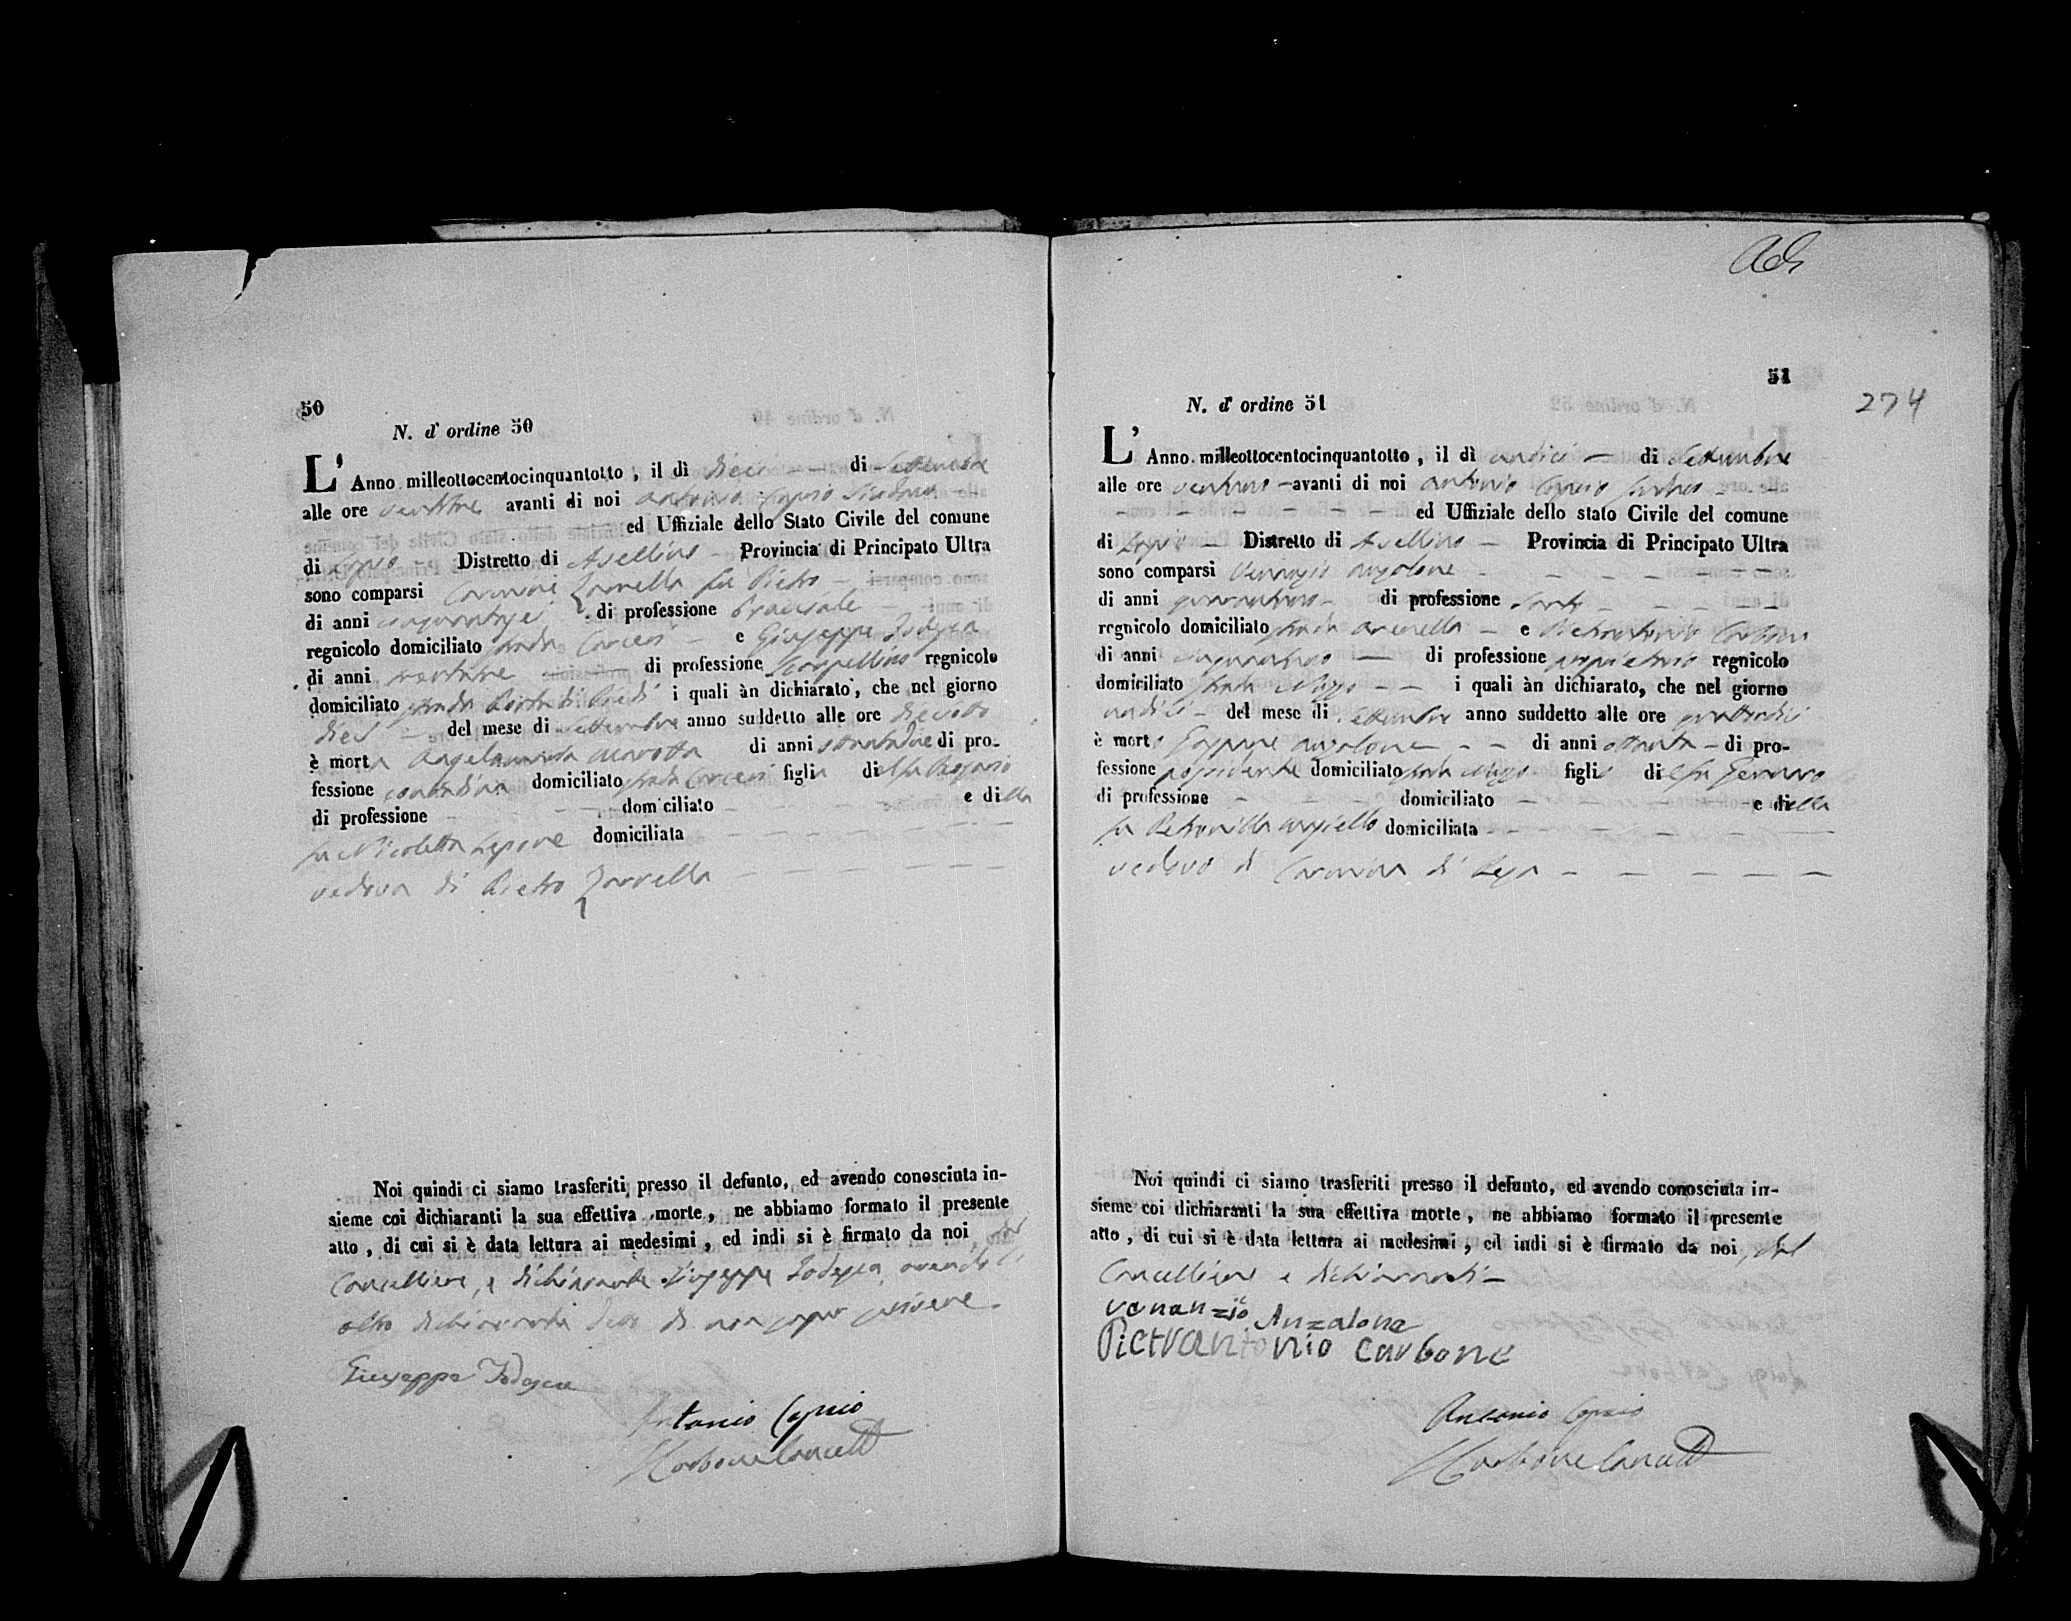 50
N. d' ordine 50
L' Anno milleottocentocinquantotto, il dì dieci di Settembre
alle ore ventitre avanti di noi Antonio Caprio Sindaco
ed Uffiziale dello Stato Civile del comune
di Distretto di Avellino Provincia di Principato Ultra
sono comparsi Zarrella fu Pietro
di anni di professione Bracciale
regnicolo domiciliato strada Carceri e Giuseppe Todesca
di anni di professione Scarpellino regnicolo
domiciliato strada Porta di Piedi i quali àn dichiarato, che nel giorno
dieci del mese di Settembre anno suddetto alle ore dieciotto
è morta Angelamaria di anni settantadue di pro-
fessione contadina domiciliato strada Carceri figlia del fu
di professione domiciliato e della
fu Nicoletta Lepore domiciliata
vedova di Pietro Zarrella
Noi quindi ci siamo trasferiti presso il defunto, ed avendo conosciuta in-
sieme coi dichiaranti la sua effettiva morte, ne abbiamo formato il presente
atto, di cui si è data lettura ai medesimi, ed indi si è firmato da noi, dal
Cancelliere, e dichiarante Giuseppe Todesca, avendo l'
altro dichiarante detto di non saper scrivere
Giuseppe Todesca
Antonio Caprio
Carbone Cancell
Ads
51
274
N. d' ordine 51
L' Anno milleottocentocinquantotto, il dì undici di Settembre
alle ore avanti di noi Antonio Caprio Sindaco
ed Uffiziale dello stato Civile del comune
di Distretto di Avellino Provincia di Principato Ultra
sono comparsi Venanzio Anzalone
di anni di professione Sarto
regnicolo domiciliato strada Arenella e Pietrantonio Carbone
di anni di professione proprietario regnicolo
domiciliato strada i quali àn dichiarato, che nel giorno
undici del mese di Settembre anno suddetto alle ore quattordici
è morto Gaspare Anzalone di anni ottanta di pro-
fessione possidente domiciliato strada figlio del fu Gennaro
di professione domiciliato e della
fu Petronilla domiciliata
vedovo di Carmina di
Noi quindi ci siamo trasferiti presso il defunto, ed avendo conosciuta in-
sieme coi dichiaranti la sua effettiva morte, ne abbiamo formato il presente
atto, di cui si è data lettura ai medesimi, ed indi si è firmato da noi, dal
Cancelliere e dichiaranti
Venanzio Anzalone
Pietrantonio Carbone
Antonio Caprio
Carbone Cancell